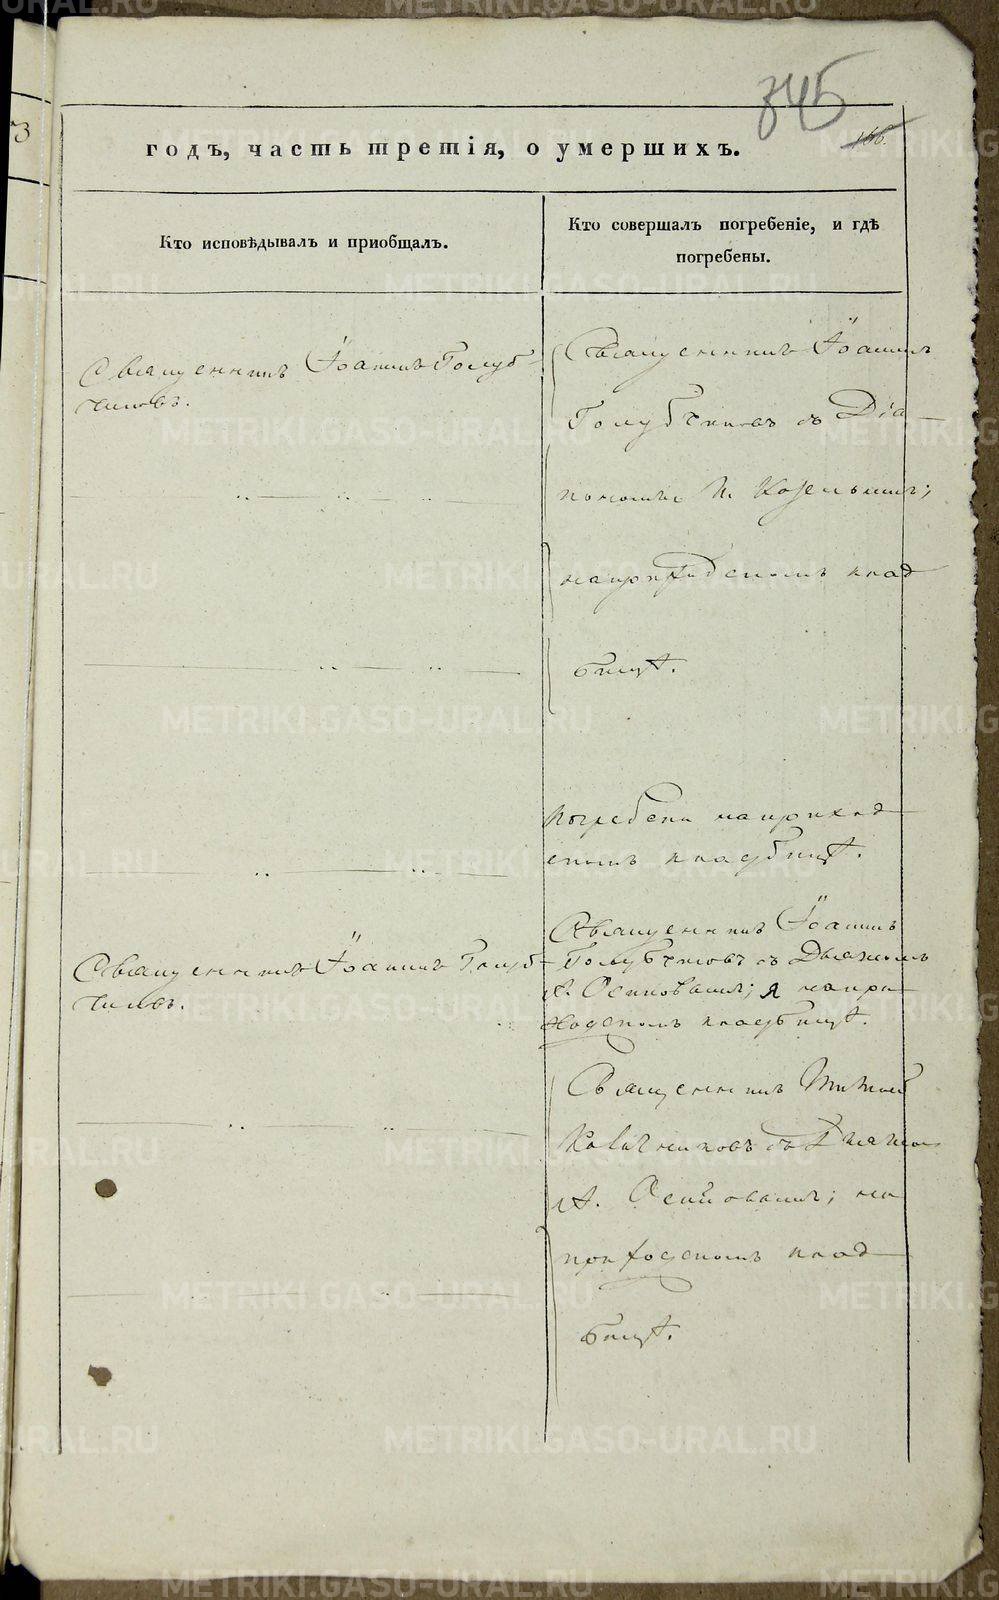 345
166.
годъ, часть третія, о умершихъ.
Кто исповѣдывалъ и приобщалъ.
Кто совершалъ погребеніе, и гдѣ
погребены.
Священникъ Іоаннъ Голуб-
чиковъ.
Священникъ Іоаннъ
Голубчиковъ съ Діа-
кономъ
на приходскомъ клад-
бищѣ.
Погребены на приход-
скомъ кладбищѣ.
Священникъ Іоаннъ Голуб-
чиковъ.
Священникъ Іоаннъ
Голубчиковъ съ Дьякономъ
А. Осиповымъ; на при-
ходскомъ кладбищѣ.
Священникъ
съ Дьякономъ
А. Осиповымъ; на
приходскомъ клад-
бищѣ.
METRIKI.GASO-URAL.RU